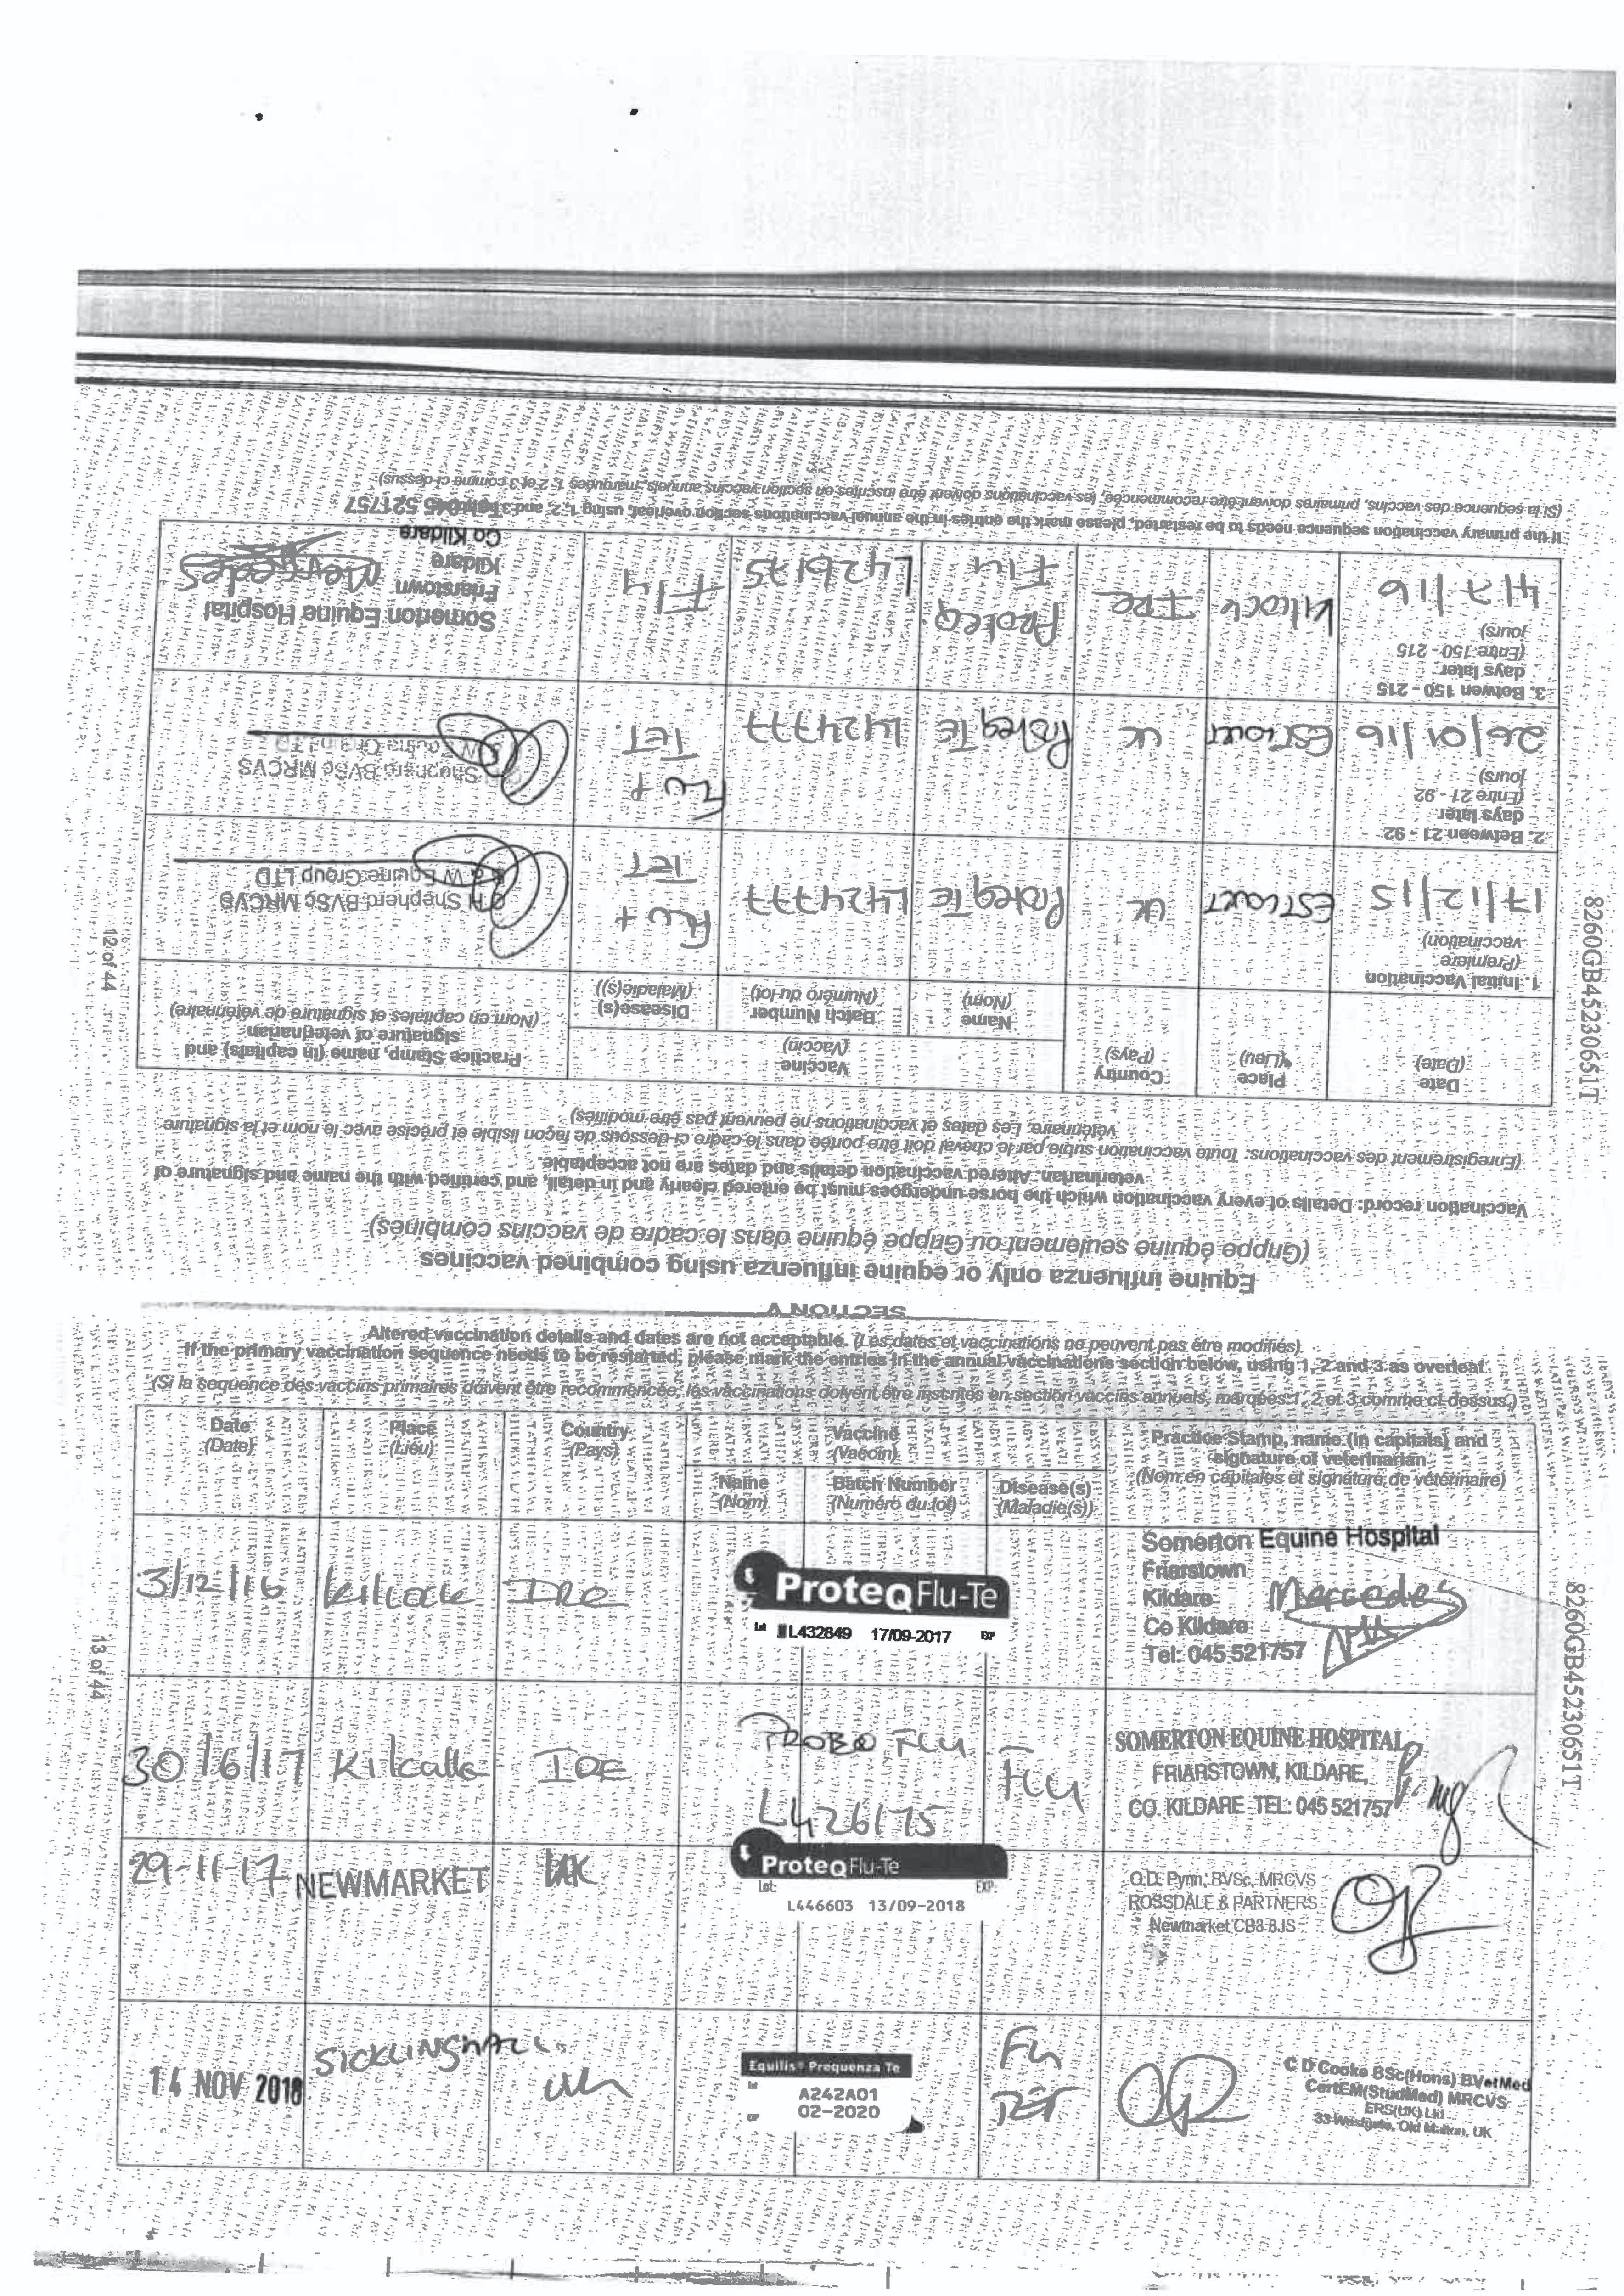 SECTION V
Equine influenza only or equine influenza using combined vaccines
(Grippe équine seulement ou Grippe équine dans le cadre de vaccins combinés)
Vaccination record: Details of every vaccination which the horse undergoes must be entered clearly and in detail, and certified with the name and signature of
veterinarian. Altered vaccination details and dates are not acceptable.
(Enregistrement des vaccinations: Toute vaccination subie par le cheval doit être portée dans le cadre ci-dessous de façon lisible et précise avec le nom et la signature
vétérinaire. Les dates et vaccinations ne peuvent pas être modifiés)
Date
(Date)
Place
(Lieu)
Country
(Pays)
Vaccine
(Vaccin)
Practice Stamp, name (in capitals) and
signature of veterinarian
(Nom en capitales et signature de vétérinaire)
Name
(Nom)
Batch Number
(Numéro du lot)
Disease(s)
(Maladie(s))
1. Initial Vaccination
(Première
vaccination)
17/12/15
ESTCOURT
UK
Proteq Te
L424777
FLU +
TET
Shepherd BVSc MRCVS
W Equine Group LTD
2. Between 21 - 92
days later
(Entre 21 - 92
jours)
26/01/16
ESTCOURT
UK
Proteq Te
L424777
FLU +
TET.
Shepherd BVSc MRCVS
3. Betwen 150 - 215
days later
(Entre 150 - 215
jours)
4/7/16
Kilcock
IRE
Proteq
Flu
L426175
Flu
Somerton Equine Hospital
Friarstown
Kildare
Co Kildare
Tel: 045 521757
Mercedes
If the primary vaccination sequence needs to be restarted, please mark the entries in the annual vaccinations section overleaf, using 1, 2, and 3
(Si la sequence des vaccins, primaires doivent être recommencée, les vaccinations doivent être inscrites en section vaccins annuels, marquées 1, 2 et 3 comme ci-dessus)
12 of 44
8260GB45230651T
Altered vaccination details and dates are not acceptable. (Les dates et vaccinations ne peuvent pas être modifiés)
If the primary vaccination sequence needs to be restarted, please mark the entries in the annual vaccinations section below, using 1, 2 and 3 as overleaf
(Si la sequence des vaccins primaires doivent être recommencée, les vaccinations doivent être inscrites en section vaccins annuels, marquées 1, 2 et 3 comme ci-dessus)
Date
(Date)
Place
(Lieu)
Country
(Pays)
Vaccine
(Vaccin)
Practice Stamp, name (in capitals) and
signature of veterinarian
(Nom en capitales et signature de vétérinaire)
Name
(Nom)
Batch Number
(Numéro du lot)
Disease(s)
(Maladie(s))
3/12/16
Kilcock
IRE
ProteqFlu-Te
Lot L432849 17/09-2017 EXP
Somerton Equine Hospital
Friarstown
Kildare
Co Kildare
Tel: 045 521757
Mercedes
30/6/17
Kilcalla
IRE
Flu
L426175
Flu
SOMERTON EQUINE HOSPITAL,
FRIARSTOWN, KILDARE,
CO. KILDARE TEL: 045 521757
29-11-17
NEWMARKET
UK
ProteqFlu-Te
Lot: EXP:
L446603 13/09-2018
O.D. Pynn, BVSc, MRCVS
ROSSDALE & PARTNERS
Newmarket CB8 8JS
14 NOV 2018
SICKLINGHALL
UK
Equilis® Prequenza Te
Lot
A242A01
EXP 02-2020
Flu
TET
C D Cooke BSc(Hons) BVetMed
CertEM(StudMed) MRCVS
ERS(UK) Ltd
33 Westgate, Old Malton, UK
13 of 44
8260GB45230651T